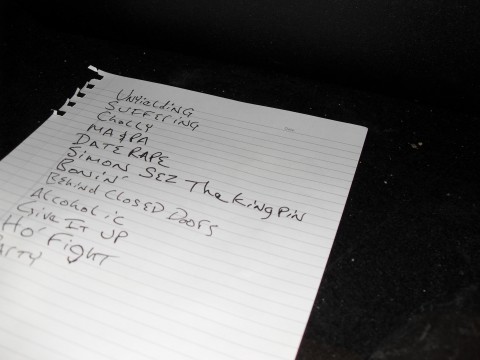 UNYIELDING
SUFFERING
Cholly
MA & PA
DATE RAPE
SIMON SEZ The KINGPIN
Bonin'
Behind CLOSED DOORS
Alcoholic
Give IT UP
HO' FIGHT